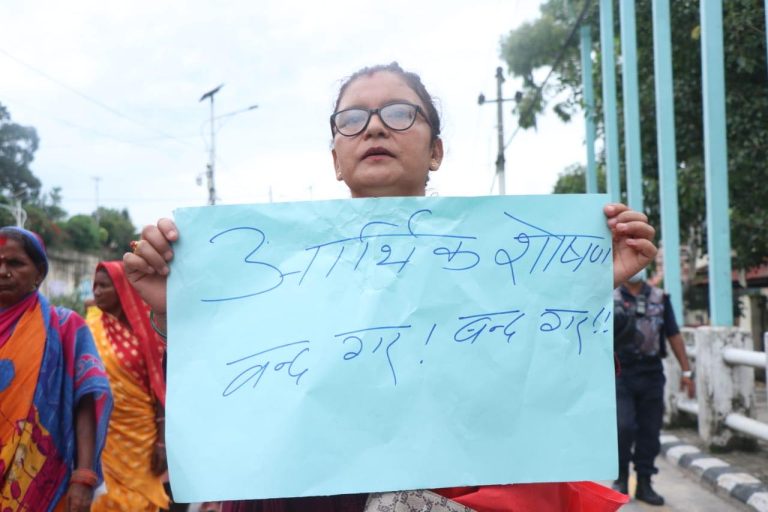 आर्थिक शोषण
वन्द गर! बन्द गर!!